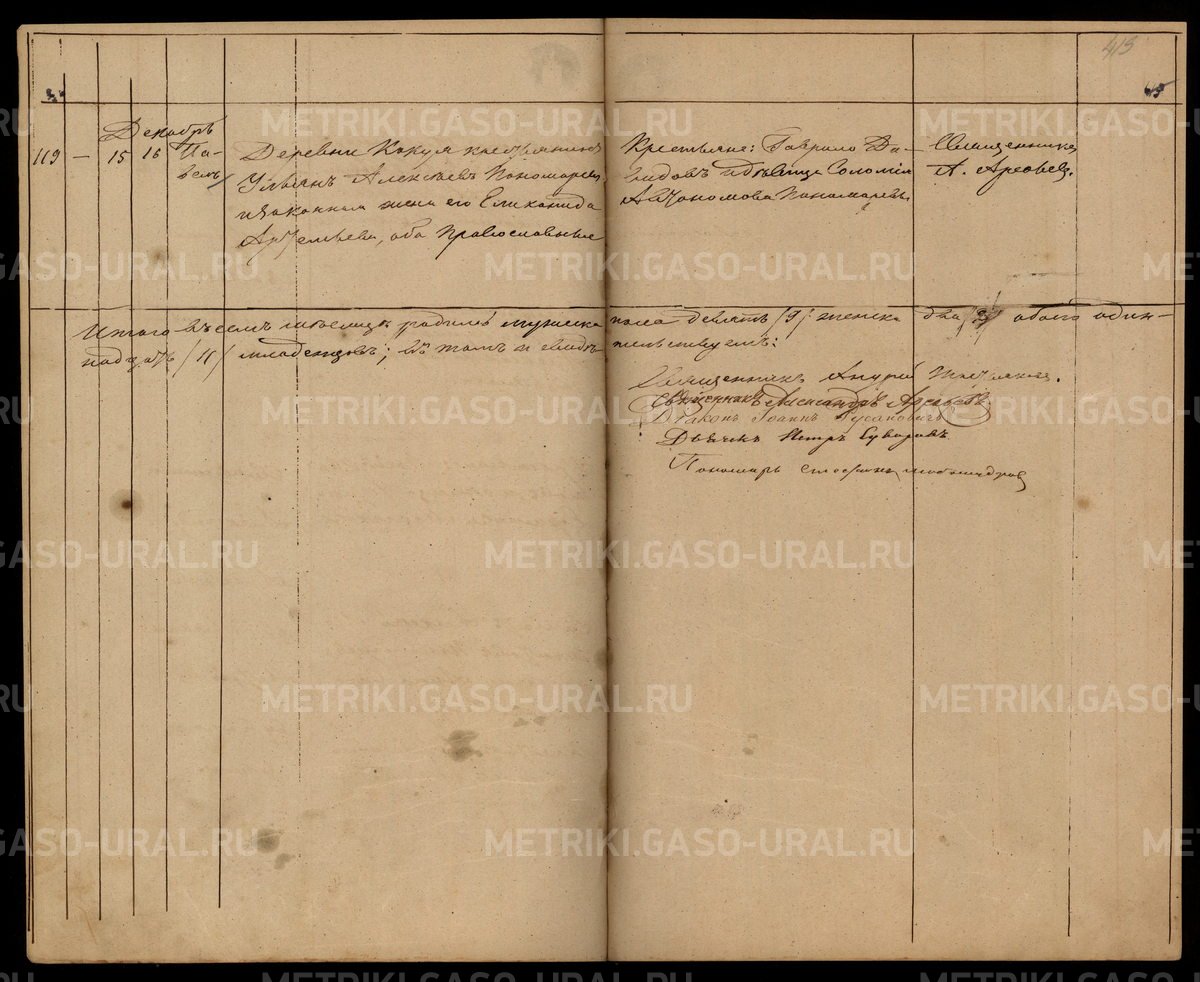 413
Декабрь
119 — 15 16 Па-
велъ
Деревни Кокуя крестьянинъ
Ульянъ Алексѣевъ Пономаревъ
и законная жена его Еликонида
Артемьева, оба православные
Крестьяне: Гаврило Да-
видовъ и дѣвица Соломія
Автономова Пономаревы
Священникъ
А. Арефьевъ.
Итого въ семъ мѣсяцѣ родилось мужеска
пола девять /9/ женска два /2/ обоего один-
надцать /11/ младенцовъ; въ томъ и свидѣ-
тельствуемъ:
Священникъ Андрей
Священникъ Александръ Арефьевъ
Діаконъ Іоаннъ
Дьячекъ Петръ Суворовъ
Пономарь
METRIKI.GASO-URAL.RU